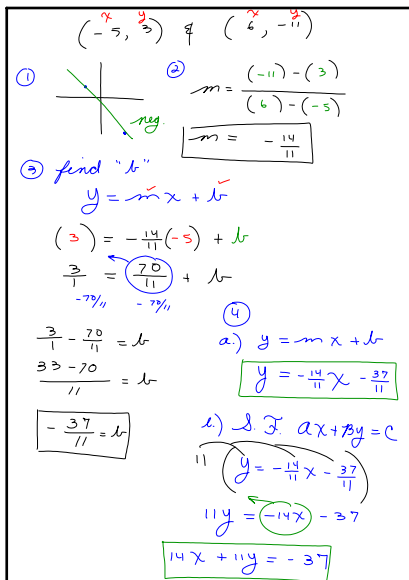 x y x y
(-5, 3) & (6, -11)
① ②
neg.
m = (-11) - (3) / (6) - (-5)
m = -14/11
③ find "b"
y = mx + b
(3) = -14/11 (-5) + b
3/1 = 70/11 + b
-70/11 -70/11
3/1 - 70/11 = b
33-70/11 = b
-37/11 = b
④
a.) y = mx + b
y = -14/11 x - 37/11
b.) S.F. ax + By = C
11 (y = -14/11 x - 37/11)
11y = -14x - 37
14x + 11y = -37